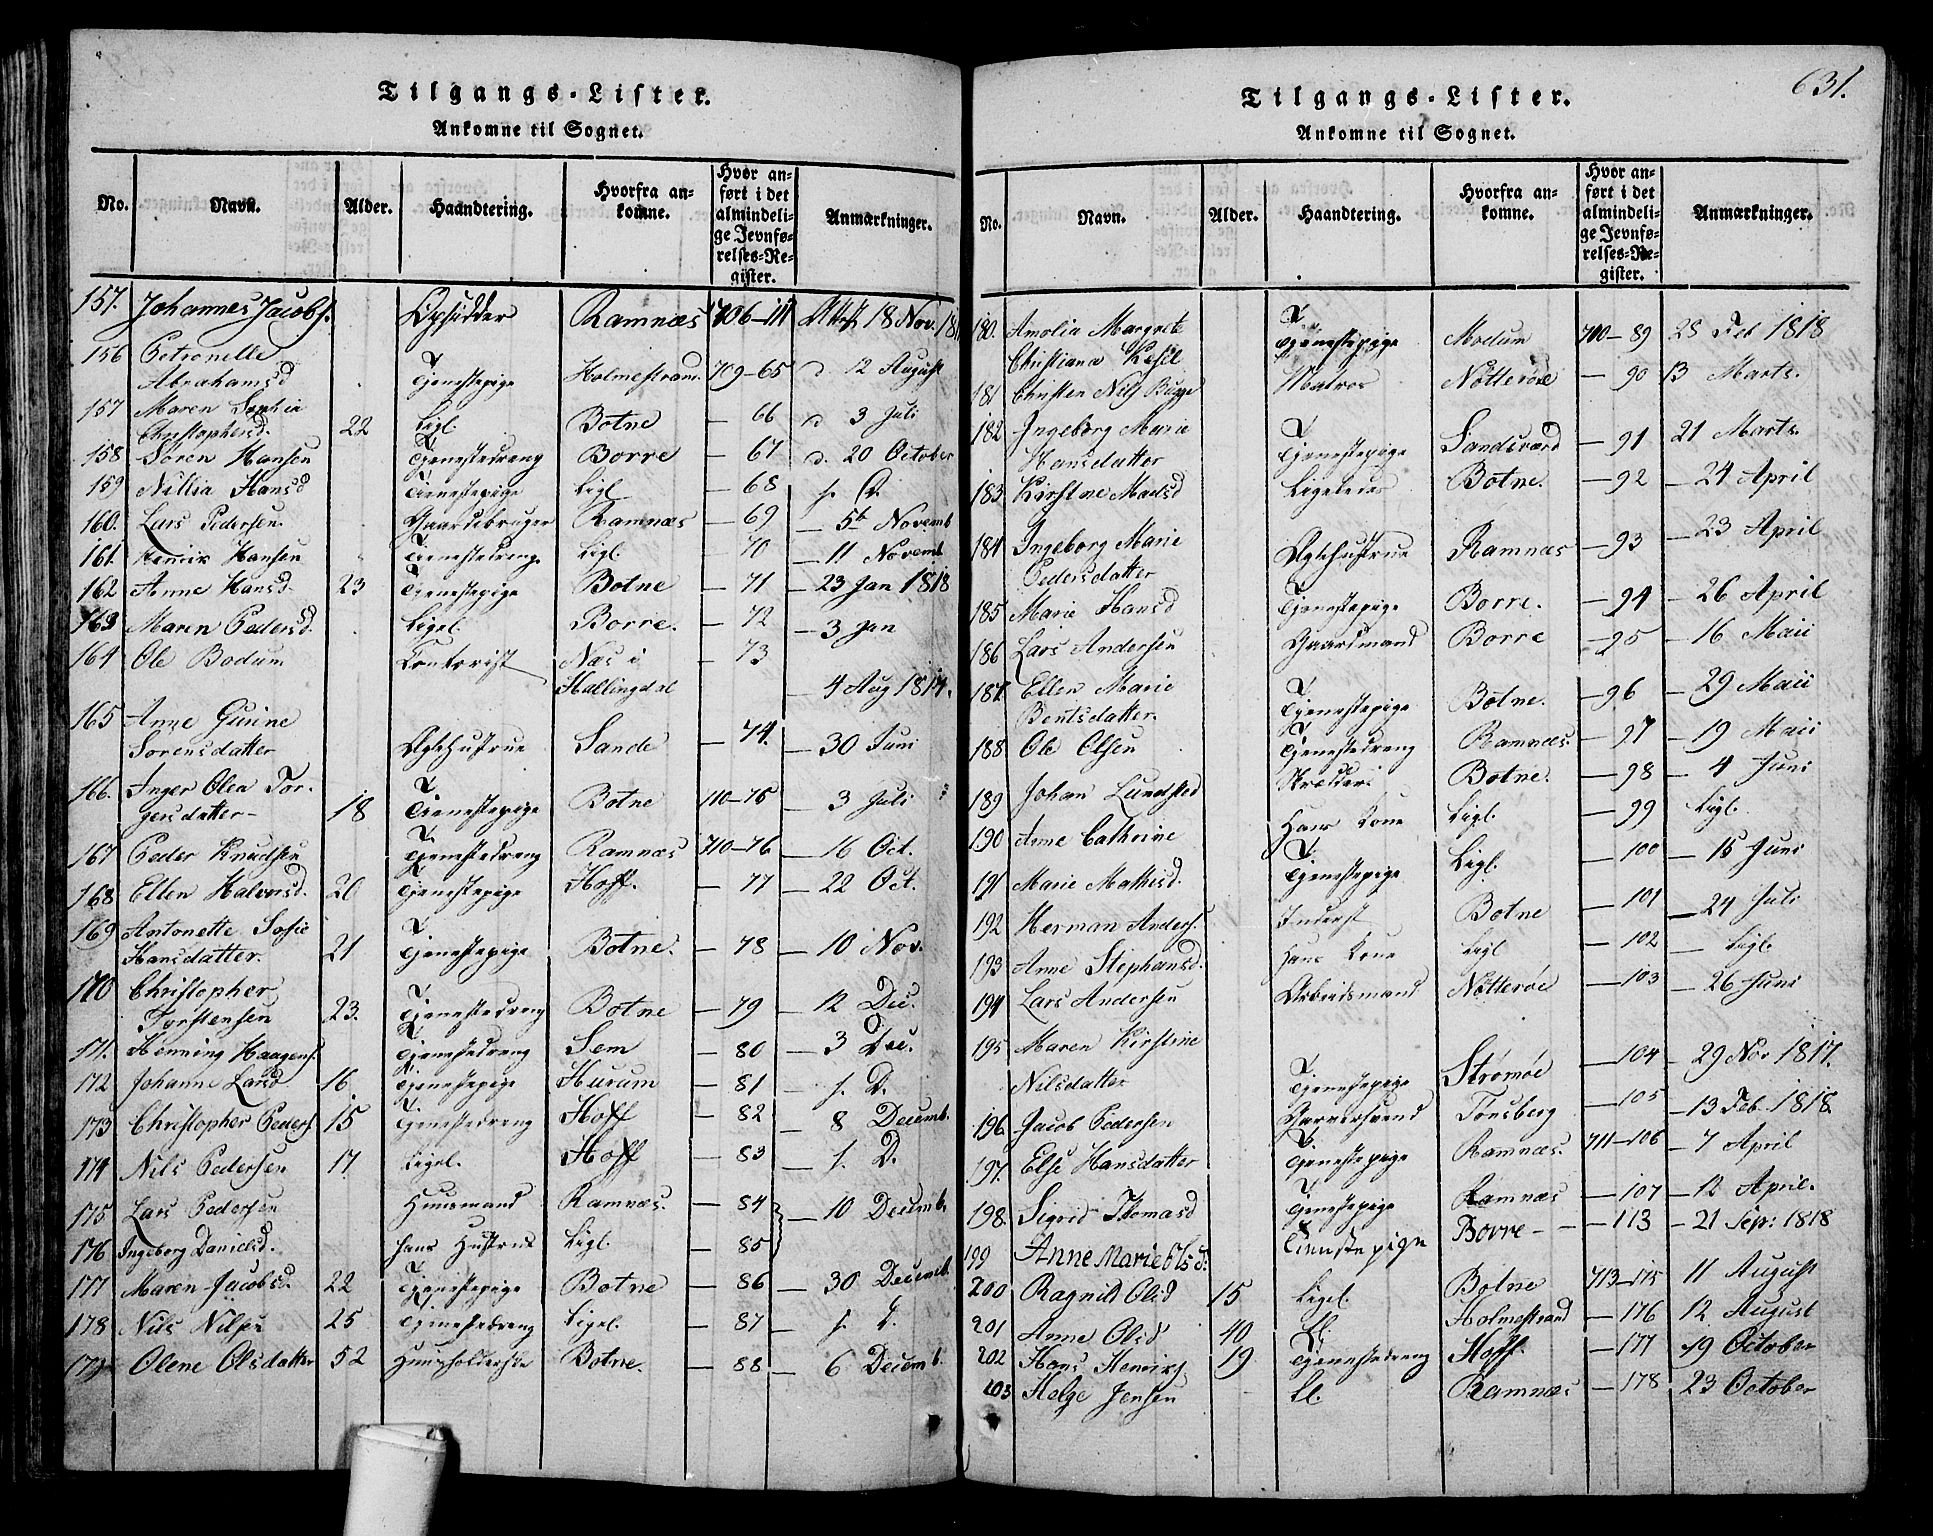 Tilgangs-Lister.
Ankomne til Sognet.
No. Navn. Alder. Haandtering. Hvorfra ankomne. Hvor anført i det almindelige Jevnførelses-Register. Anmærkninger.
157. Johannes Jacobs. Opsidder Ramnæs 706-111 18 Nov. 181
156 Petronelle
Abrahamsd Tjenestepige Holmestrand 709-65 d 12 August
157 Maren Sophia
Christophersd. 22 Ligl. Botne — 66 d 3 Juli
158 Søren Hansen Tjenestedreng Borre — 67 d. 20 October
159 Nillia Hansd Tjenestepige Ligl — 68
160. Lars Pedersen. Gaardebruger Ramnæs — 69 — 5te Novemb
161. Henrik Hansen Tjenestedreng Ligl. — 70 — 11 Novemb
162 Anne Hansd. 23 Tjenestepige Botne — 71 — 23 Jan 1818
163 Maren Pedersd. Ligel. Borre. — 72 — 3 Jan
164 Ole Bodum Contorist Næs i — 73
Hallingdal — 4 Aug 1817.
165 Anne Gurine
Sørensdatter Ægtehustrue Sande — 74. — 30 Juni
166. Inger Olea Tor-
gersdatter- 18 Tjenestepige Botne 710-75 — 3 Juli
167 Peder Knudsen Tjenestedreng Ramnæs 710-76 — 16 Oct.
168 Ellen Halvorsd. 20 Tjenestepige Hoff. — 77 — 22 Oct.
169 Antonette Sofie
Hansdatter. 21 Tjenestepige Botne. — 78 — 10 Nov.
170 Christopher
Torstensen 23. Tjenestedreng Botne — 79 — 12 Dec.
171. Henning Haagens. Tjenestedreng Sem — 80 — 3 Dec.
172 Johanne Larsd 16 Tjenestepige Hurum — 81
173 Christopher Peders. 15 Tjenestedreng Hoff — 82 — 8 Decemb.
174 Nils Pedersen 17. Ligel. Hoff — 83
175 Lars Pedersen Huusmand Ramnæs. — 84 — 10 Decemb.
176 Ingeborg Danielsd. hans Hustrue Ligl. — 85
177 Maren Jacobsd. 22 Tjenestepige Botne — 86 — 30 Decemb.
178 Nils Nilsen 25 Tjenestedreng Ligel. — 87
179 Olene Olsdatter 52 Huusholderske Botne. — 88 — 6 Decemb.
631.
Tilgangs-Lister.
Ankomne til Sognet.
No. Navn. Alder. Haandtering. Hvorfra ankomne. Hvor anført i det almindelige Jevnførelses-Register. Anmærkninger.
180. Amolia Margrete Tjenestepige Modum 710-89 28 Feb 1818
Christiana
181 Christen Nils Bugge Matros Nøtterøe — 90 13 Marts.
182 Ingeborg Marie
Hansdatter Tjenestepige Sandsværd — 91 21 Marts.
183. Kirstine Madsd Botne. — 92 — 24 April
184 Ingeborg Marie
Pedersdatter Ægtehustrue Ramnæs — 93 — 23 April
185 Marie Hansd Tjenestepige Borre. — 94 — 26 April
186 Lars Andersen Gaardmand Borre — 95 — 16 Maii
187. Ellen Marie
Bentsdatter. Tjenestepige Botne. — 96 — 29 Maii
188 Ole Olsen Tjenestedreng Ramnæs. — 97 — 19 Maii
189 Johan Lundsted Skrædder Botne. — 98 — 4 Juni
190 Anne Cathrine Hans Kone Ligl. — 99 Ligl.
191 Marie Mathisd. Tjenestepige Ligl. — 100 — 15 Juni
192 Herman Anders. Inderst Botne — 101 — 24 Juli
193 Anne Stephansd. Hans Kone Ligl — 102 — Ligl.
194 Lars Andersen Arbeidsmand Nøtterøe — 103 — 26 Juni
195 Maren Kirstine
Nilsdatter Tjenestepige Strømøe — 104 — 29 Nov 1817.
196. Jacob Pedersen Garversvend Tønsberg — 105 — 13 Feb. 1818
197. Else Hansdatter Tjenestepige Ramnæs. 711-106 — 7 April
198. Sigrid Thomasd Tjenestepige Ramnæs — 107 — 12 April.
199 Anne Marie Olsd: Tienstepige Borre — 113 — 21 Sep: 1818
200 Ragnild Olsd 15 Ligel. Botne 713-175 11 August
201 Anne Olsd 40 Holmestrand — 176 12 August
202 Hans Henriks. 19 Tjenestedreng Hoff. — 177 19 October
203 Helge Jensen Ramnæs — 178 23 October